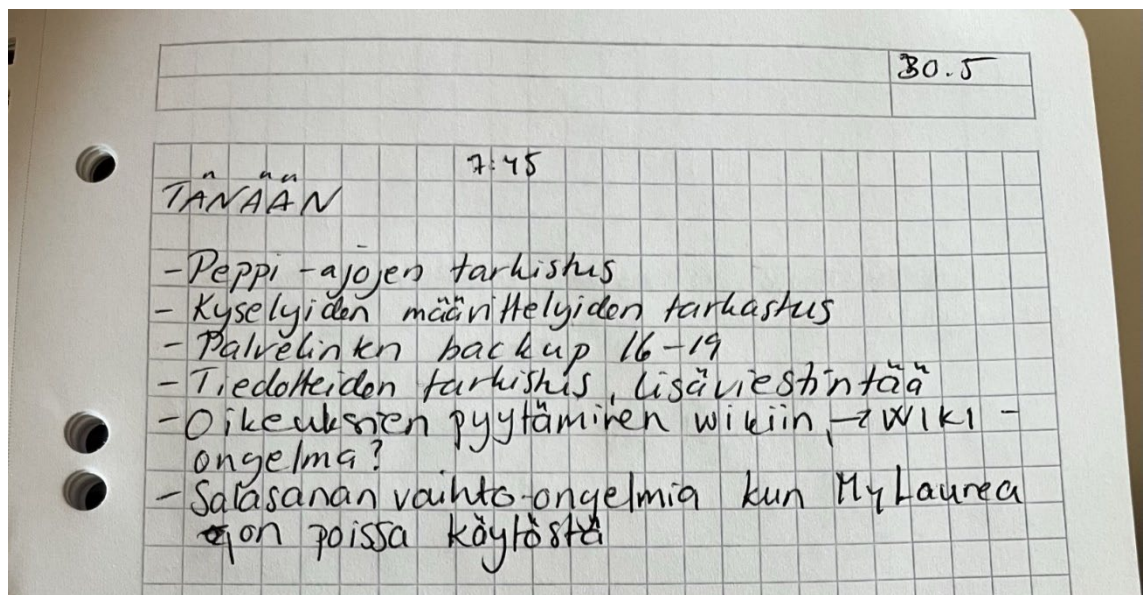 30.5
7:45
TÄNÄÄN
- Peppi -ajojen tarkistus
- Kyselyiden määrittelyiden tarkastus
- Palvelinkn backup 16-19
- Tiedotteiden tarkistus, lisäviestintää
- Oikeuksien pyytäminen wikiin, → WIKI -
ongelma?
- Salasanan vaihto-ongelmia kun MyLaurea
on poissa käytöstä